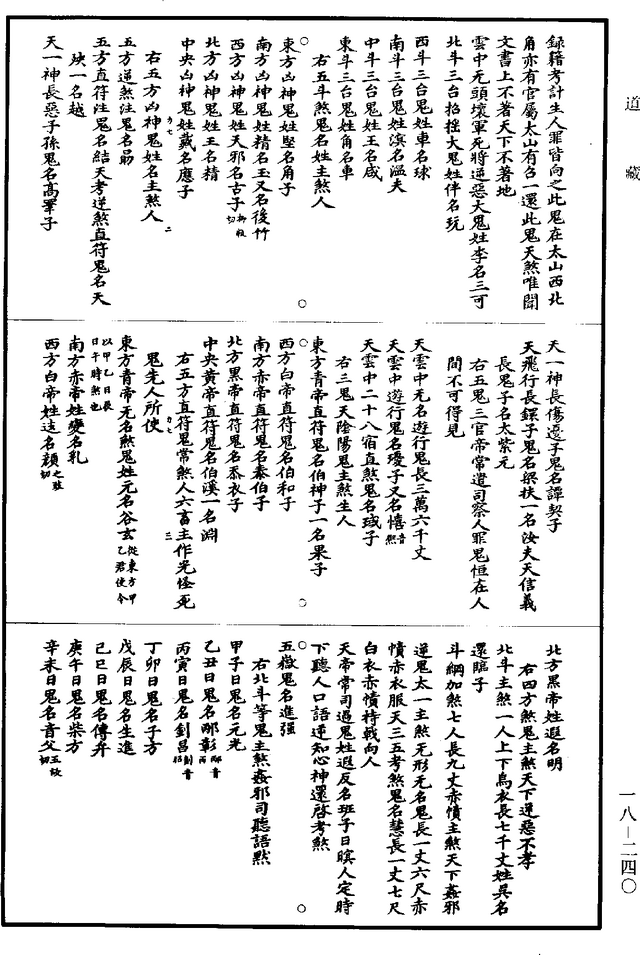 道藏
錄籍考計生人罪皆向之此鬼在太山西北
角亦有官屬太山有合一還此鬼天煞唯聞
文書上不著天下不著地
雲中无頭壞軍死將逆惡大鬼姓李名三可
北斗三台招搖大鬼姓伴名玩
西斗三台鬼姓車名球
南斗三台鬼姓濱名溫夫
中斗三台鬼姓王名咸
東斗三台鬼姓角名車
右五斗煞鬼名姓主煞人
東方凶神鬼姓堅名角子
南方凶神鬼姓精名玉又名後竹
西方凶神鬼姓天邪名古子
北方凶神鬼姓王名精
中央凶神鬼姓戴名應子
右五方凶神鬼姓名主煞人
五方逆煞注鬼名節
五方直符注鬼名結天考逆煞直符鬼名天
殃一名越
天一神長惡子孫鬼名高睪子
天一神長傷還子鬼名譚契子
天飛行長鐸子鬼名梁扶一名汝夫天信義
長鬼子名太紫元
右五鬼三官帝常遣司察人罪鬼恒在人
間不可得見
天雲中无名遊行鬼長三萬六千丈
天雲中遊行鬼名瓊子又名憘音熙
天雲中二十八宿直煞鬼名彧子
右三鬼天陰陽鬼主煞生人
東方青帝直符鬼名伯神子一名果子
西方白帝直符鬼名伯和子
南方赤帝直符鬼名泰伯子
北方黑帝直符鬼名黍衣子
中央黃帝直符鬼名伯溪一名淵
右五方直符鬼常煞人六畜主作光怪死
鬼先人所使
東方青帝无名煞鬼姓元名谷玄從東方甲乙君使令
以甲乙日長日午時煞也
南方赤帝姓變名乳
西方白帝姓遠名額
北方黑帝姓遐名明
右四方煞鬼主煞天下逆惡不孝
北斗主煞一人上下烏衣長七千丈姓吳名
還賠子
斗綱加煞七人長九丈赤幘主煞天下姦邪
逆鬼太一主煞无形无名鬼長一丈六尺赤
幘赤衣服天三五考煞鬼名慧長一丈七尺
白衣赤幘持戟向人
天帝常司過鬼姓遐反名班子日暝人定時
下聽人口語逆知心神還啓考煞
五嶽鬼名進強
右北斗等鬼主煞姦邪司聽語默
甲子日鬼名元光
乙丑日鬼名邴彰邴音丙
丙寅日鬼名釗昌釗音招
丁卯日鬼名子方
戊辰日鬼名生進
己巳日鬼名傳弁
庚午日鬼名柴方
辛未日鬼名音父
一八—二四〇